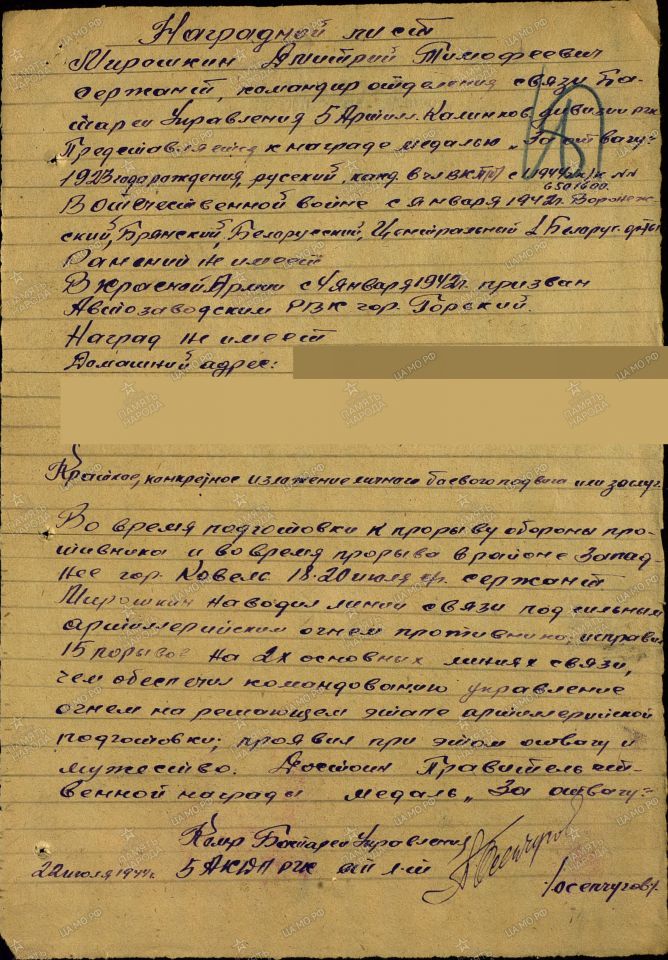 Наградной лист
Мирошкин Дмитрий Тимофеевич
сержант, командир отделения связи Ба-
тареи Управления 5 Артил. Калинков. дивизии РГК
Представляется к награде медалью „За отвагу"
1923 года рождения, русский, канд. в чл ВКП(б) с 1944 к/к №
6501600.
В отечественной войне с января 1942г. Воронеж-
ский, Брянский, Белорусский, Центральный 1 Белорус. фр-ты
Ранений не имеет
В Красной Армии с 4 января 1942г. призван
Автозаводским РВК гор. Горский.
Наград не имеет
Домашний адрес:
Краткое, конкретное изложение личного боевого подвига или заслуг.
Во время подготовки к прорыву обороны про-
тивника и во время прорыва в районе Запад-
нее гор. Ковель 18-20 июля сержант
Мирошкин наводил линии связи под сильным
артиллерийским огнем противника, исправил
15 порывов на 2х основных линиях связи,
чем обеспечил командованию управление
огнем на решающем этапе артиллерийской
подготовки; проявил при этом отвагу и
мужество. Достоин Правительст-
венной награды медаль „За отвагу"
Комр Батареи Управления
22 июля 1944г. 5 АКДП РГК ст л-т
/Осепчугов/